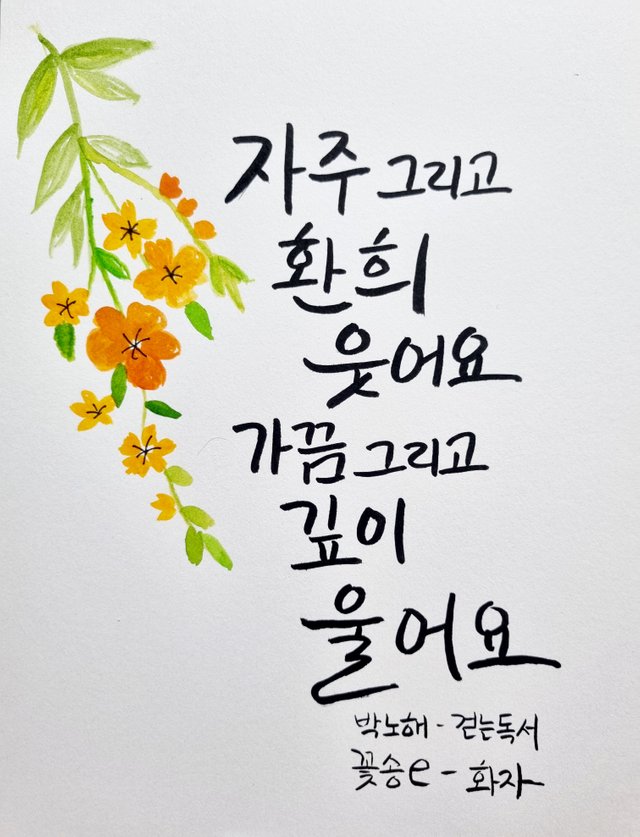 자주 그리고
환희
웃어요
가끔 그리고
깊이
울어요
박노해 - 걷는독서
꽃송e - 화자